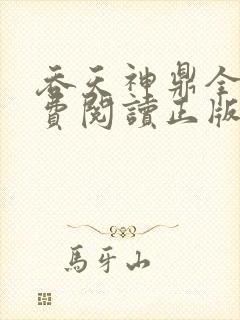 吞天神鼎全
費閱讀正版
馬牙山